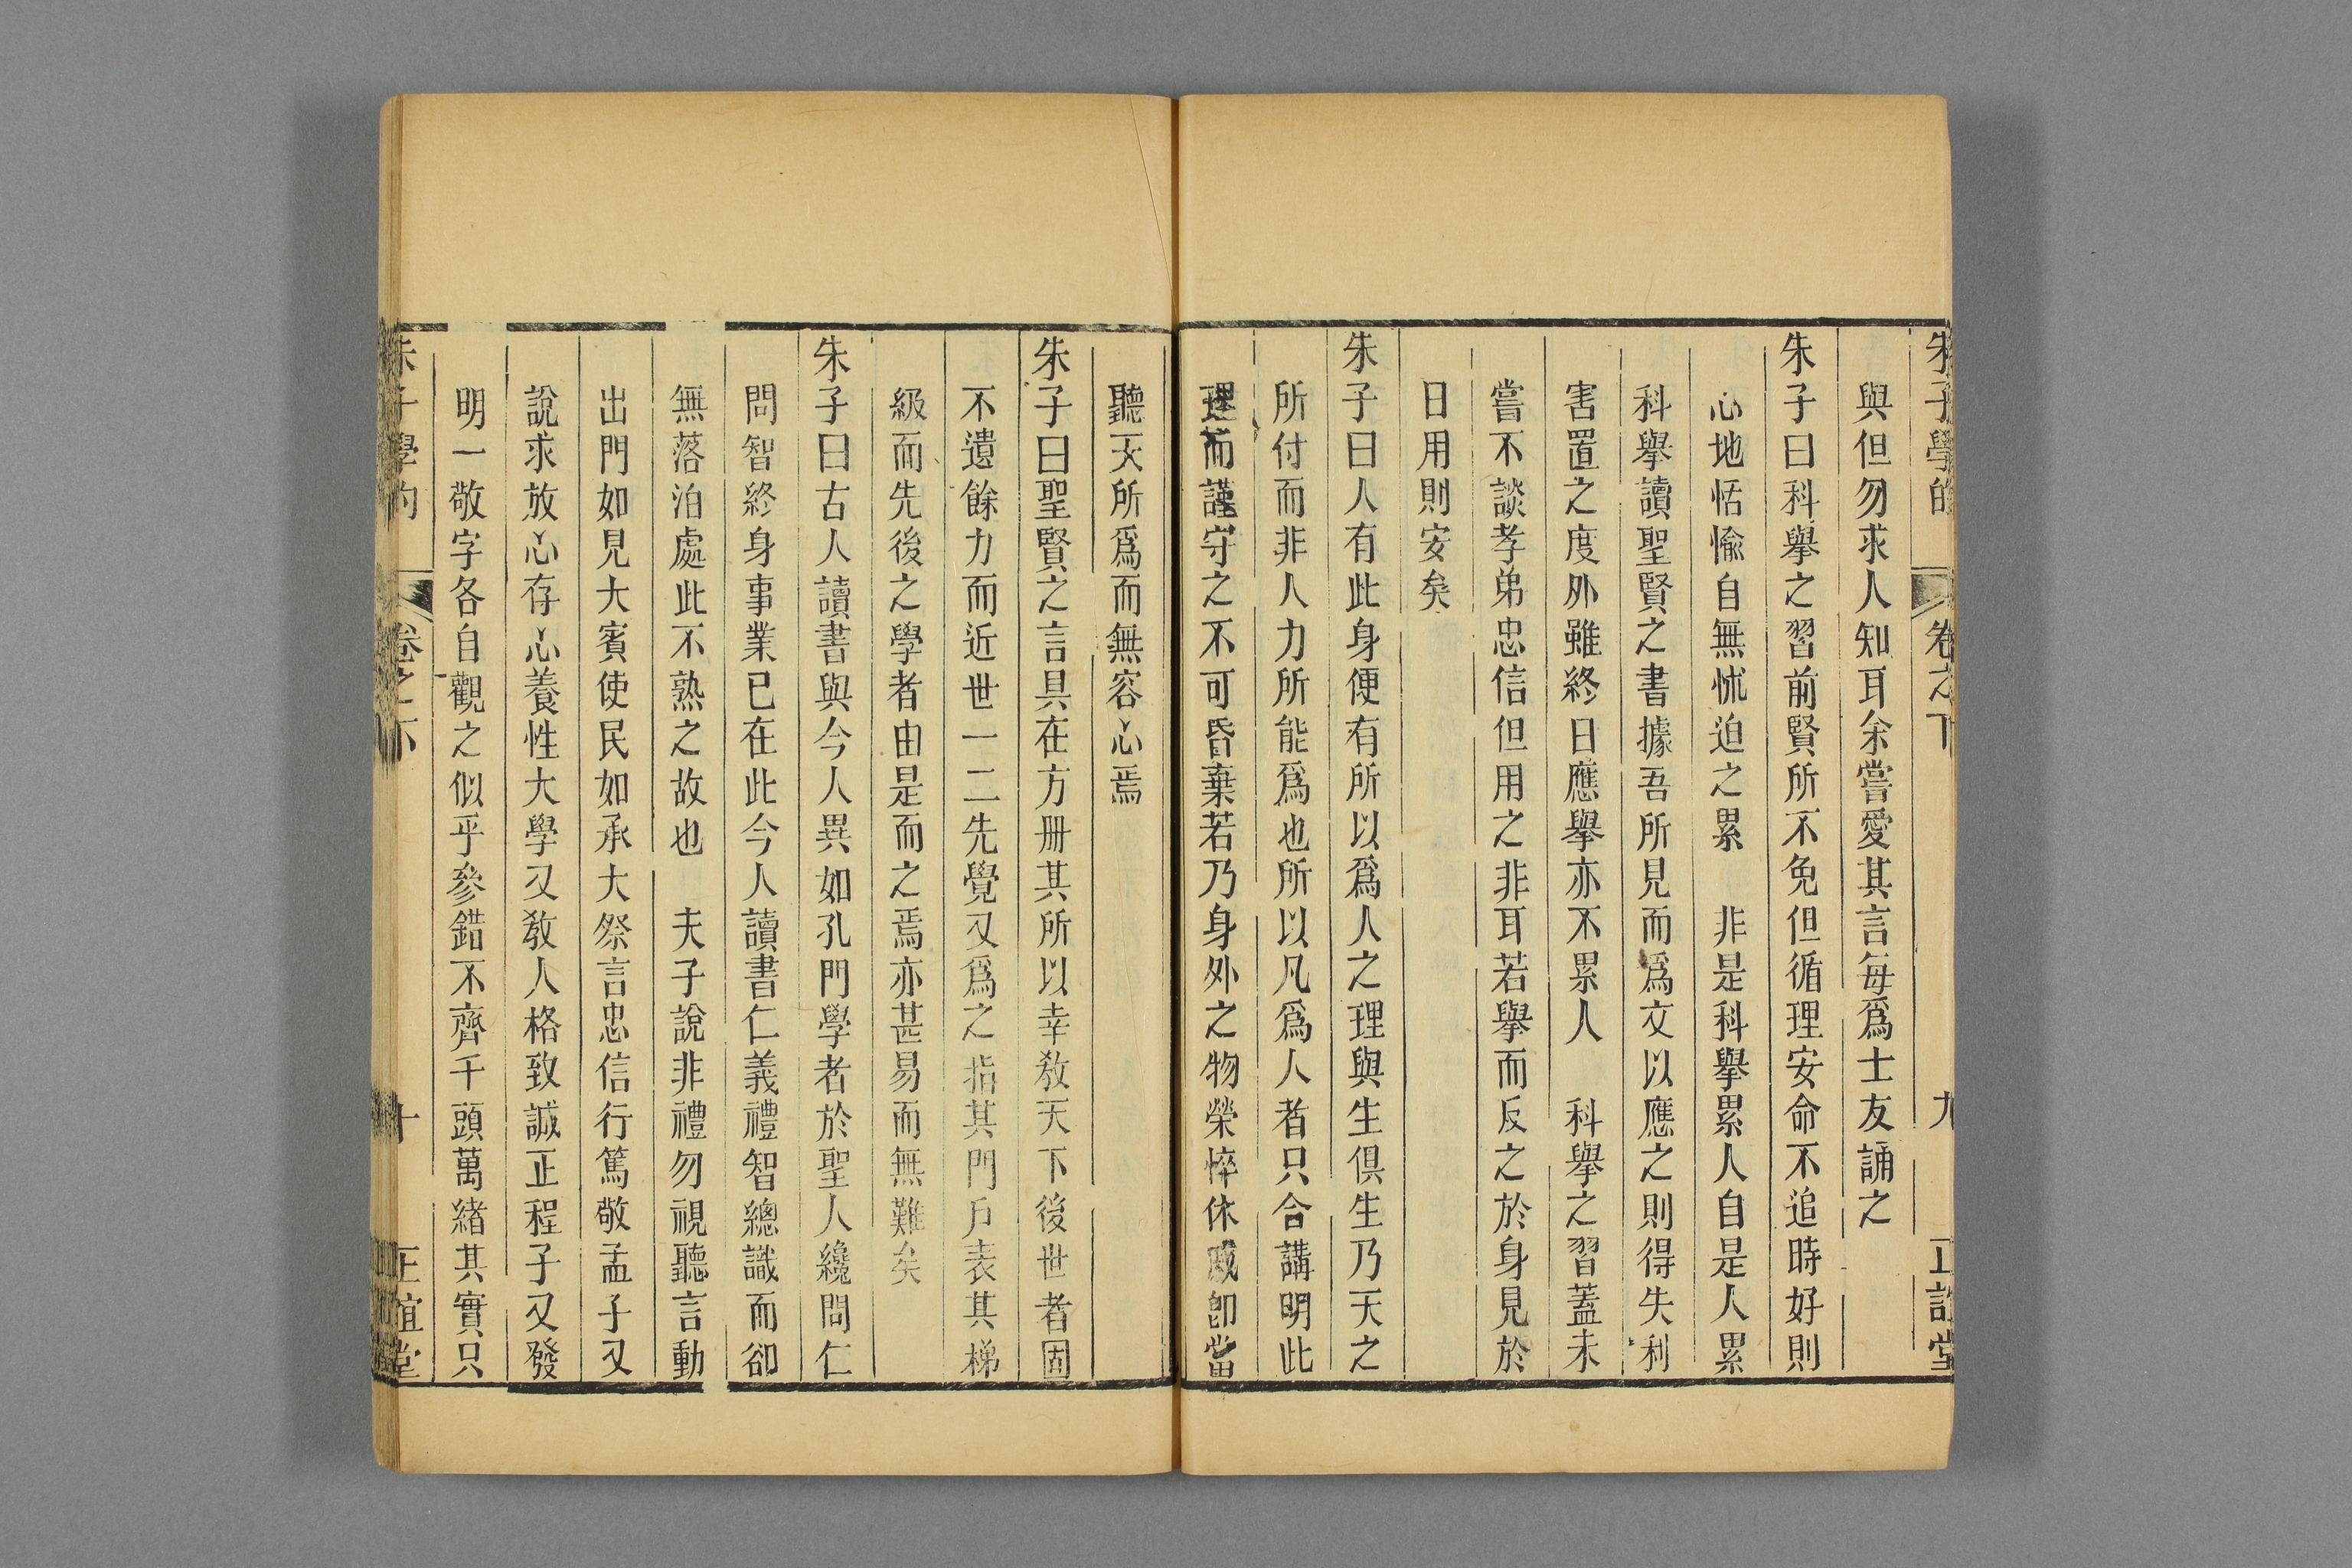 朱子學的 卷之下 九 正誼堂
與但勿求人知耳余嘗愛其言每爲士友誦之
朱子曰科舉之習前賢所不免但循理安命不追時好則
心地恬愉自無怵迫之累 非是科舉累人自是人累
科舉讀聖賢之書據吾所見而爲文以應之則得失利
害置之度外雖終日應舉亦不累人 科舉之習蓋未
嘗不談孝弟忠信但用之非耳若舉而反之於身見於
日用則安矣
朱子曰人有此身便有所以爲人之理與生俱生乃天之
所付而非人力所能爲也所以凡爲人者只合講明此
理而謹守之不可昏棄若乃身外之物榮悴休戚卽當
聽天所爲而無容心焉
朱子曰聖賢之言具在方冊其所以幸教天下後世者固
不遺餘力而近世一二先覺又爲之指其門戶表其梯
級而先後之學者由是而之焉亦甚易而無難矣
朱子曰古人讀書與今人異如孔門學者於聖人纔問仁
問智終身事業已在此今人讀書仁義禮智總識而卻
無落泊處此不熟之故也 夫子說非禮勿視聽言動
出門如見大賓使民如承大祭言忠信行篤敬孟子又
說求放心存心養性大學又教人格致誠正程子又發
明一敬字各自觀之似乎參錯不齊千頭萬緒其實只
朱子學的 卷之下 十 正誼堂